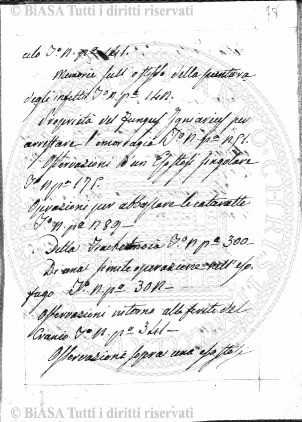 © BiASA Tutti i diritti riservati
18
culo T.º II. p.ª 141.
Memorie sull' della puntura
degli infetti T.º II. p.ª 142.
Proprietà del fungus Igniarius per
arrestare l'emorragia T.º II. p.ª 151.
Osservazioni d'un singolare
T.º II. p.ª 175.
Operazioni per abbassare le cataratte
T.º II. p.ª 289
della Tracheotomia T.º II. p.ª 300 -
Di una simile operazione nell'eso-
fago T.º II. p.ª 302 -
Osservazioni intorno alle ferite del
Cranio T.º II. p.ª 341 -
Osservazione sopra una
© BiASA Tutti i diritti riservati